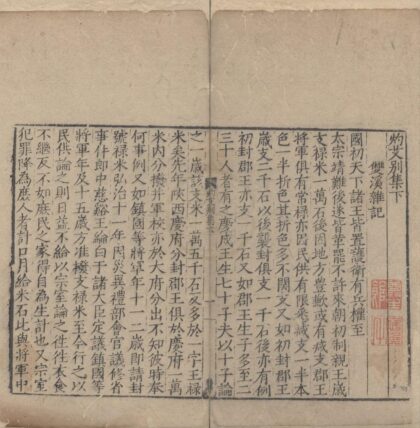 灼艾別集下
雙溪雜記
國初天下諸王皆置護衛有兵權至
太宗靖難後遂皆革罷不許來朝初制親王歲
支祿米一萬石後因地方豊歉或有歲支郡王
將軍俱有常祿亦因民供有限甚減支一半本
色一半折色其折色多不関支又如初封郡王
歲支二千石以後襲封俱支一千石後亦有例
初封郡王亦支一千石又如郡王生子多至二
三十人者有之慶成王生七十子夫以十子論
之一歲該支米一萬五千石又多於一字王祿
米矣先年陝西慶府分封郡王俱於慶府一萬
米內分撥并軍校亦於大府分出不知彼時奉
何事例又如鎮國等將軍年十一二歲即請封
號祿米弘治十一年因災異禮部會官議修省
事件即中慈谿王綸白于諸大臣定議鎮國等
將軍年及十五歲方准撥支祿米至今行之以
民供論之則日益不給以宗室論之徃徃衣食
不繼反不如庶民之家得自為生計也又宗室
犯罪降為庶人者計口月給米石此與將軍中